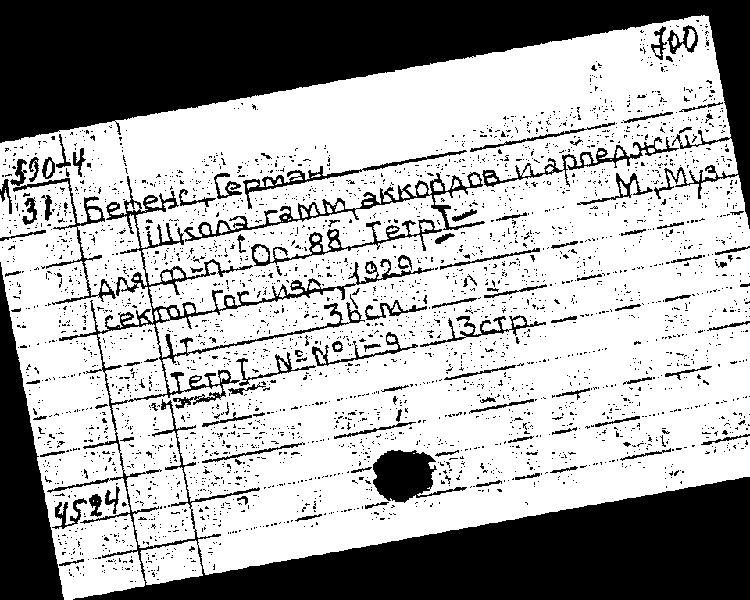 700
М 590-4.
31.
Беренс, Герман
Школа гамм, аккордов и арпеджий
для ф-п. Op. 88 Тетр I — М., Муз.
сектор Гос. изд., 1929.
1 т. 36 см.
Тетр I. №№ 1-9 13 стр.
4524.